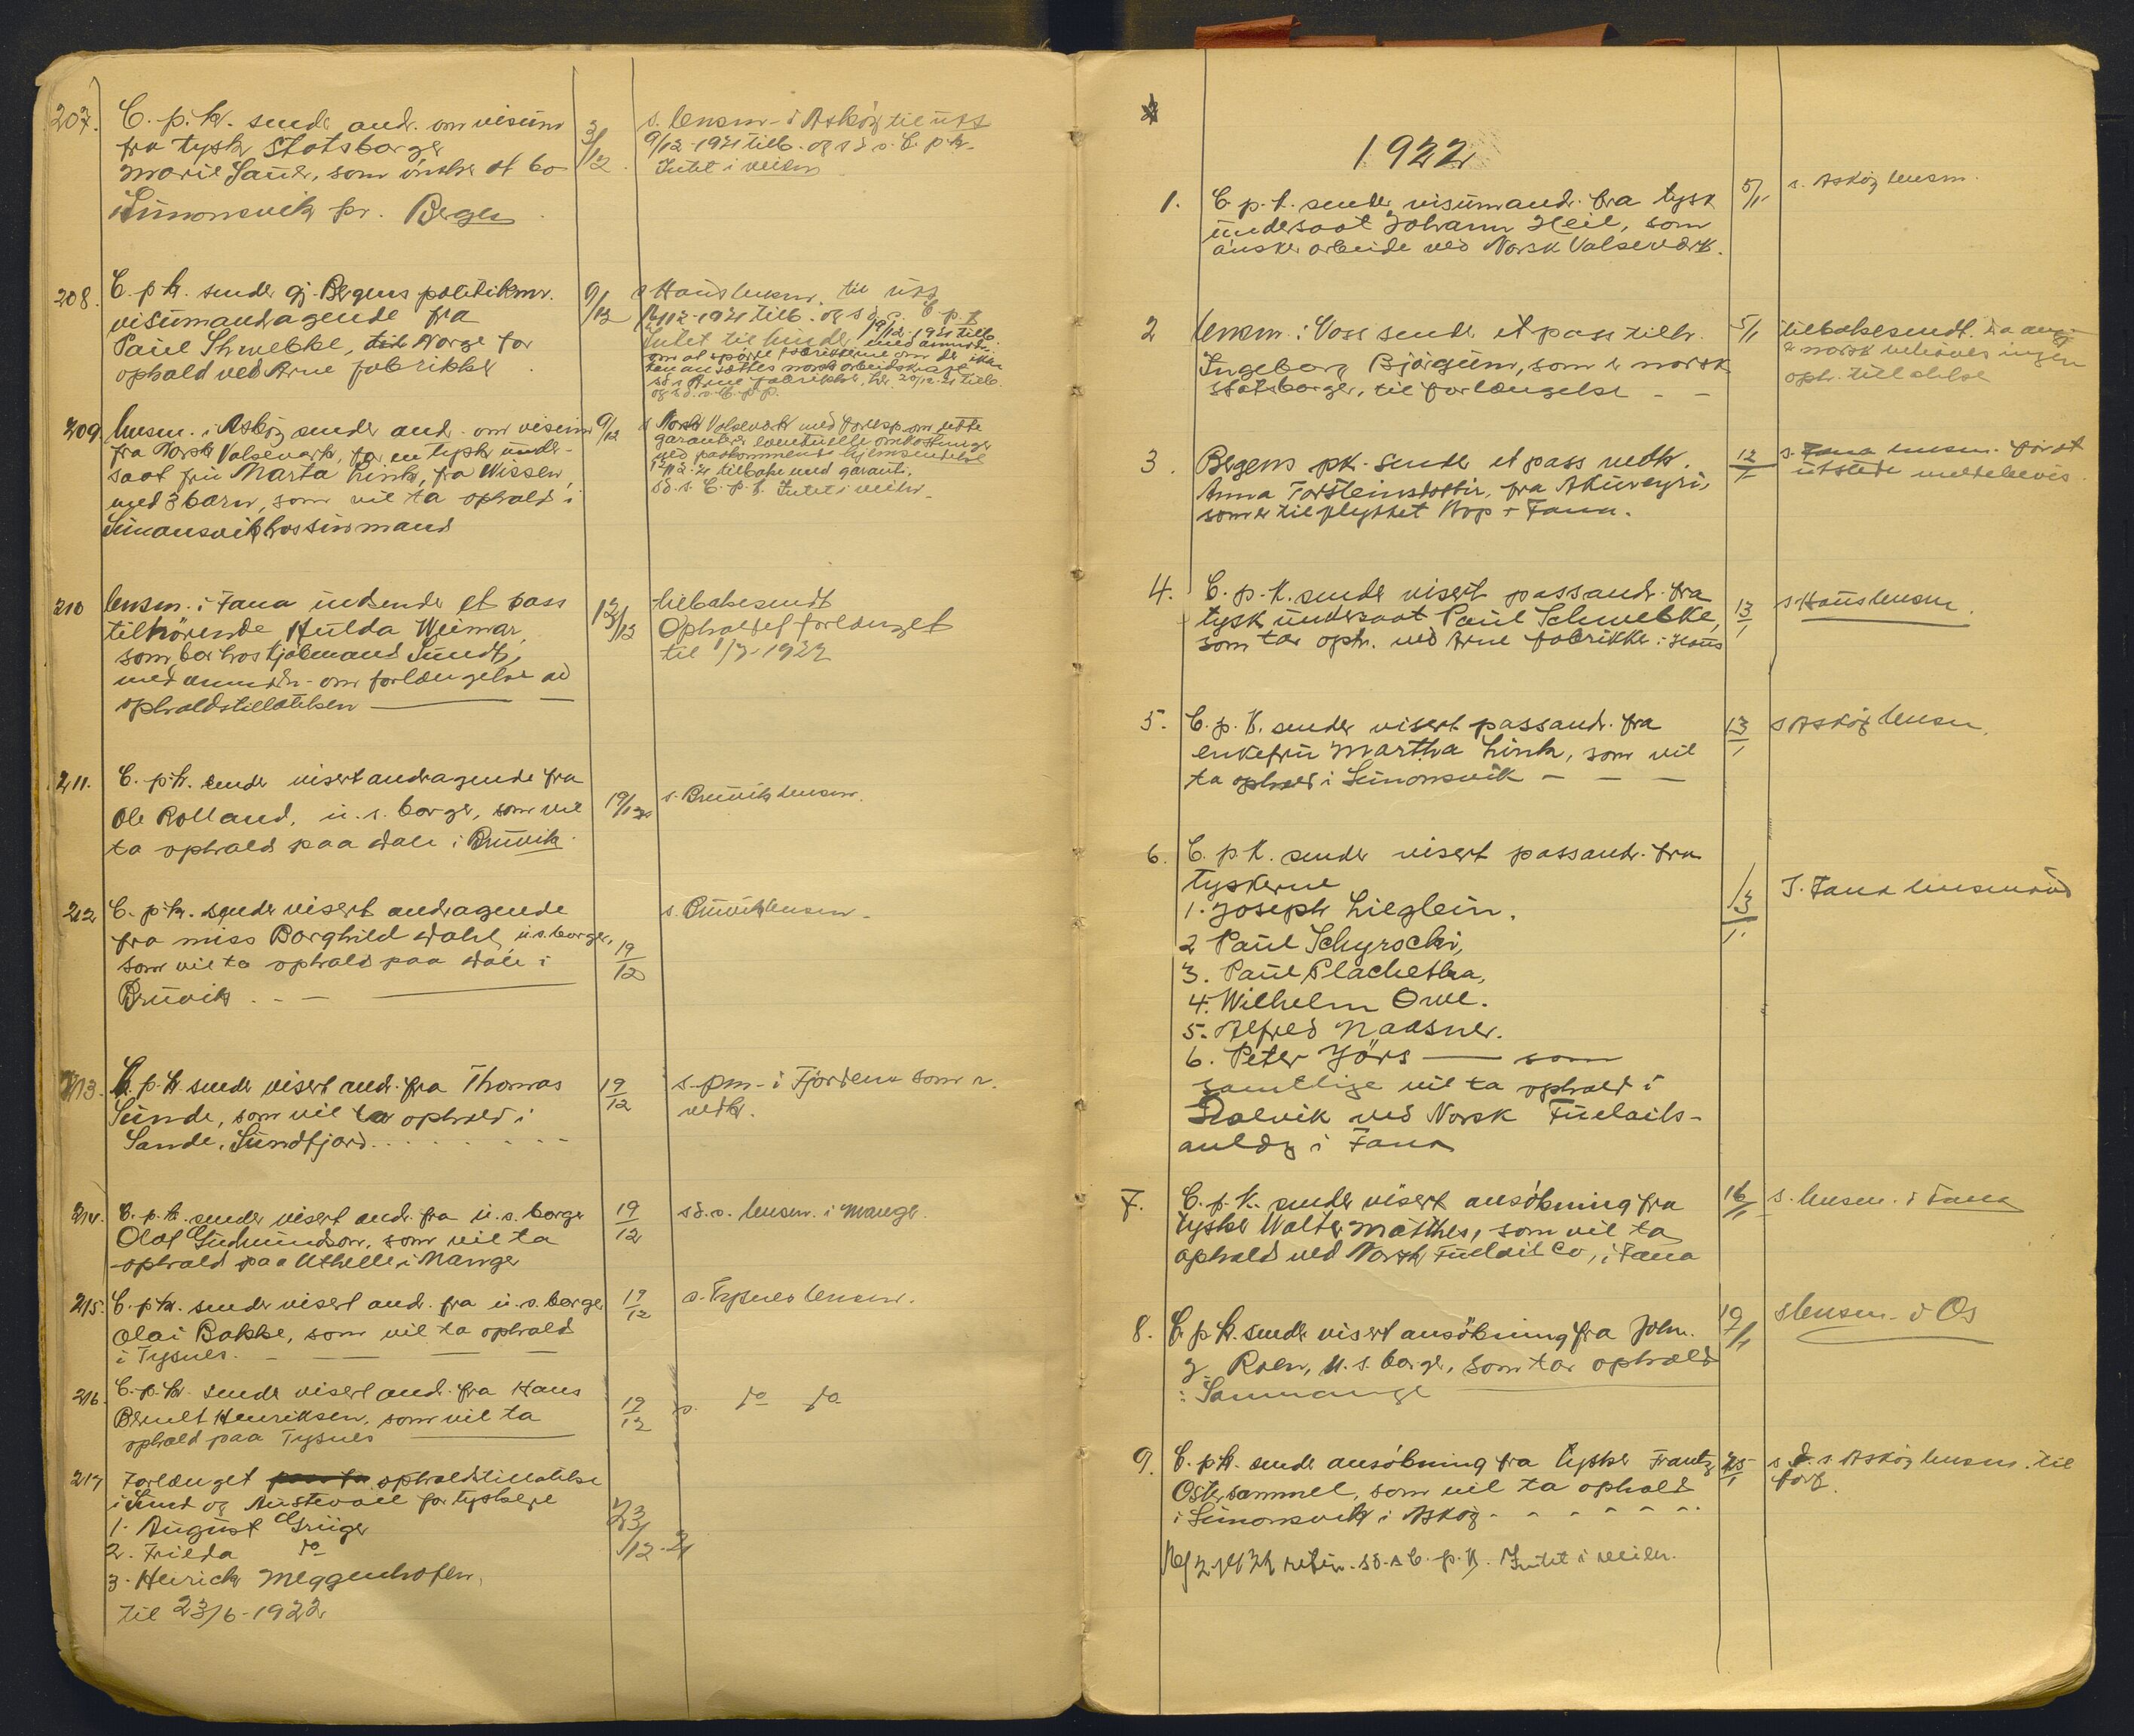 207.
C. p. k. sender andr. om visum
fra tysk Statsborger
Marie Sauer, som önsker at bo
i Simonsvik pr. Bergen
3/12
s. lensm. i Asköy til utt
9/12-1921 tilb. og s d s. C. p. k.
Intet i veien
208.
C. p k. sender gj. Bergens politikmr.
visumandragende fra
Paul Shwebke, til Norge for
ophold ved Arne fabrikker
9/12
s Haus lensm. til utt
12-1921 tilb. og s d s. C p k
Intet til hinder 19/12-1921 tilb.
med anmodn.
om at spörre fabrikkerne om der ikke
kan ansættes norsk arbeidskraft
sd s Arne fabrikker, hr. 20/12-21 tilb.
og s d. s. C. p. p.
209
lensm. i Asköy sender andr. om visum
fra Norsk Valseverk, for en tysk under-
saat fru Marta Link, fra Wissen,
med 3 barn, som vil ta ophold i
Simonsvik hos sin mand
9/12
s Norsk Valseverk med foresp. om dette
garanterer eventuelle omkostninger
ved paakommende hjemsendelse
12/12-21 tilbake med garanti.
sd. s. C. p. k. Intet i veien
210
lensm. i Fana indsender et pass
tilhörende Hulda Weimar,
som bor hos kjöbmand Sundt,
med anmodn. om forlængelse av
opholdstillatelsen
13/12
tilbakesendt
Opholdet forlænget
til 1/7-1922
211.
C. p. k. sender visert andragende fra
Ole Rolland, u. s. borger, som vil
ta ophold paa Dale i Bruvik.
19/12
s. Bruvik lensm.
212
C. p. k. sender visert andragende
fra miss Borghild Dahl, u. s. borger,
som vil ta ophold paa Dale i
Bruvik
19/12
s. Bruvik lensm.
213.
C. p. k sender visert andr. fra Thomas
Sunde, som vil ta ophold i
Sande, Sundfjord
19/12
s. pm. i Fjordene som r.
vedk.
214.
C. p. k. sender visert andr. fra u. s. borger
Olaf Gudmundson, som vil ta
ophold paa Uthelle i Manger
19/12
sd. s. lensm. i Manger.
215.
C. p k. sender visert andr. fra u. s. borger
Olai Bakke, som vil ta ophold
i Tysnes.
19/12
s. Tysnes lensm.
216
C. p. k. sender visert andr. fra Hans
Bernt Henriksen, som vil ta
ophold paa Tysnes
19/12
s. do do
217
Forlænget opholdstillatelse
i Sund og Austevoll for tyskere
1. August Grüger
2. Frieda do
3. Heirich Meggenhofen,
til 23/6-1922
23/12-21
1922
1.
C. p. k. sender visumandr. fra tysk
undersaat Johann Heil, som
önsker arbeide ved Norsk Valseverk.
5/1
s. Asköy lensm.
2
lensm. i Voss sender et pass tilh.
Ingeborg Björgum, som er norsk
statsborger, til forlængelse
5/1
tilbakesendt. Da ang.
er norsk behöves ingen
oph. tilladelse
3.
Bergens pk. sender et pass vedk.
Anna Torsteinsdottir, fra Akureyri,
som er tilflyttet Hop i Fana.
12/1
s. Fana lensm. först
utstede meldebevis.
4.
C. p. k. sender visert passandr. fra
tysk undersaat Paul Schwebke,
som tar oph. ved Arne fabrikker i Haus
13/1
s Haus lensm.
5.
C. p. k. sender visert passandr. fra
enkefru Martha Link, som vil
ta ophold i Simonsvik
13/1
s Asköy lensm.
6.
C. p. k. sender visert passandr. fra
tyskerne
1. Joseph Lieglein.
2 Paul Schyrocki,
3. Paul Plachetka,
4. Wilhelm Orve.
5. Alfred Naasner.
6. Peter Jörs som
samtlige vil ta ophold i
Dolvik ved Norsk Fueloils-
anlæg i Fana
13/1
S. Fana lensmand
7.
C. p. k. sender visert ansökning fra
tysker Walter Matthes, som vil ta
ophold ved Norsk Fueloil Co, i Fana
16/1
s. lensm. i Fana
8.
C. p k. sender visert ansökning fra John.
J. Roen, u. s. borger, som tar ophold
i Samnanger
19/1
s lensm. i Os
9.
C. p k. sender ansökning fra tysker Frantz
Ostersammel, som vil ta ophold
i Simonsvik i Asköy
25/1
s. d. s Asköy lensm. til
forf.
2-1922 retur. sd. s C. p. k. Intet i veien.